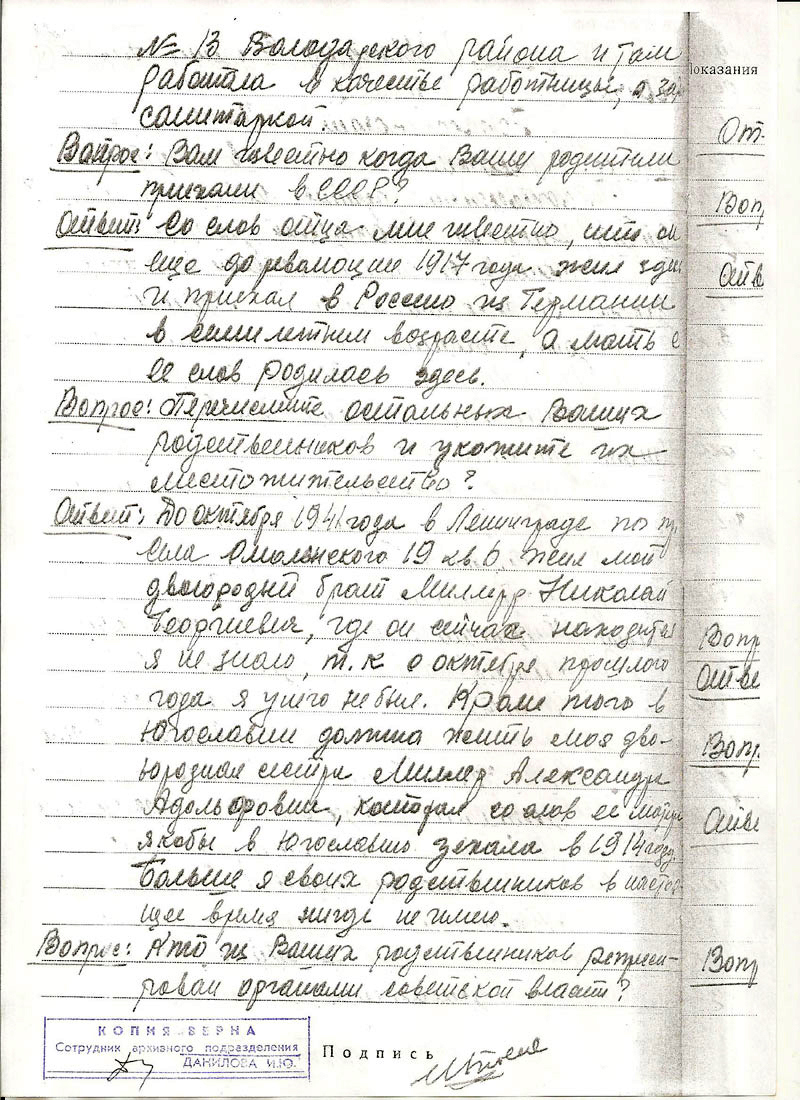 № 13 Володарского района и там
показания
работала в качестве работницы, а за
санитаркой
От
Вопрос: Вам известно когда Ваши родители
приехали в СССР?
Воп
Ответ: Со слов отца мне известно, что он
еще до революции 1917 года жил зде
Отв
и приехал в Россию из Германии
в семилетнем возрасте, а мать с
ее слов родилась здесь.
Вопрос: Перечислите остальных Ваших
родственников и укажите их
местожительство?
Ответ: До октября 1941 года в Ленинграде по пр.
Села Смоленского 19 кв 6 жил мой
двоюродный брат Миллер Николай
Георгиевич, где он сейчас находится
Вопр
я не знаю, т.к с октября прошлого
Отве
года я у него не был. Кроме того в
Югославии должна жить моя дво-
Вопр.
юродная сестра Миллер Александра
Адольфовна, которая со слов ее матери
Отве
якобы в Югославию уехала в 1914 году.
Больше я своих родственников в насто-
ящее время нигде не имею.
Вопрос: Кто из Ваших родственников репресси-
Вопр
рован органами советской власти?
КОПИЯ ВЕРНА
Сотрудник архивного подразделения
ДАНИЛОВА И.Ю.
Подпись